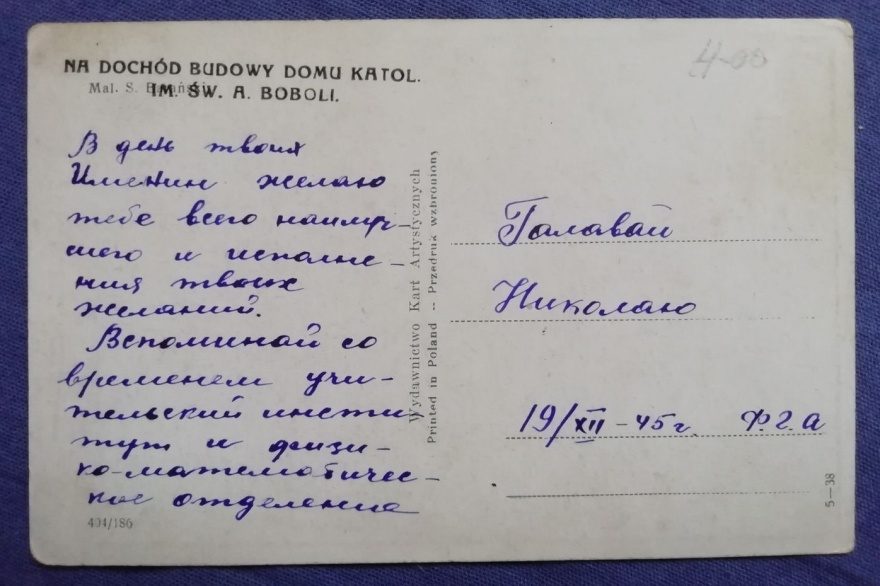 NA DOCHÓD BUDOWY DOMU KATOL.
IM. ŚW. A. BOBOLI.
Mal. S.
В день твоих
Именин желаю
тебе всего наилуч-
шего и исполне-
ния твоих
желаний.
Вспоминай со
временем учи-
тельский инсти
тут и физи-
ко-математичес-
кое отделение
404/186
Wydawnictwo Kart Artystycznych
Printed in Poland -- Przedruk wzbroniony
4-00
Галавай
Николаю
19/XII-45г. Ф.Г.А
5—38